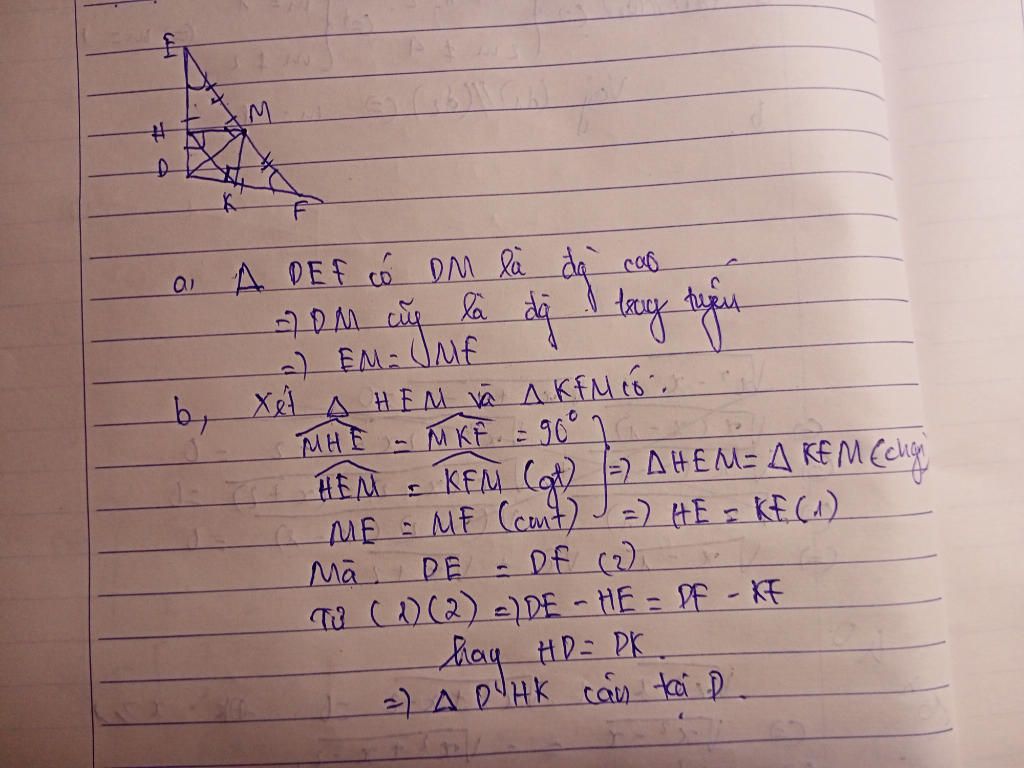 E
M
H
D
K
F
a, Δ DEF có DM là đg cao
=> DM cũg là đg trug tuyến
=> EM = MF
b, Xét Δ HEM và Δ KFM có:
MHE = MKF = 90°
HEM = KFM (gt) => Δ HEM = Δ KFM (chgn)
ME = MF (cmt) => HE = KF (1)
Mà DE = DF (2)
Từ (1) (2) => DE - HE = DF - KF
hay HD = DK.
=> Δ DHK cân tại D.